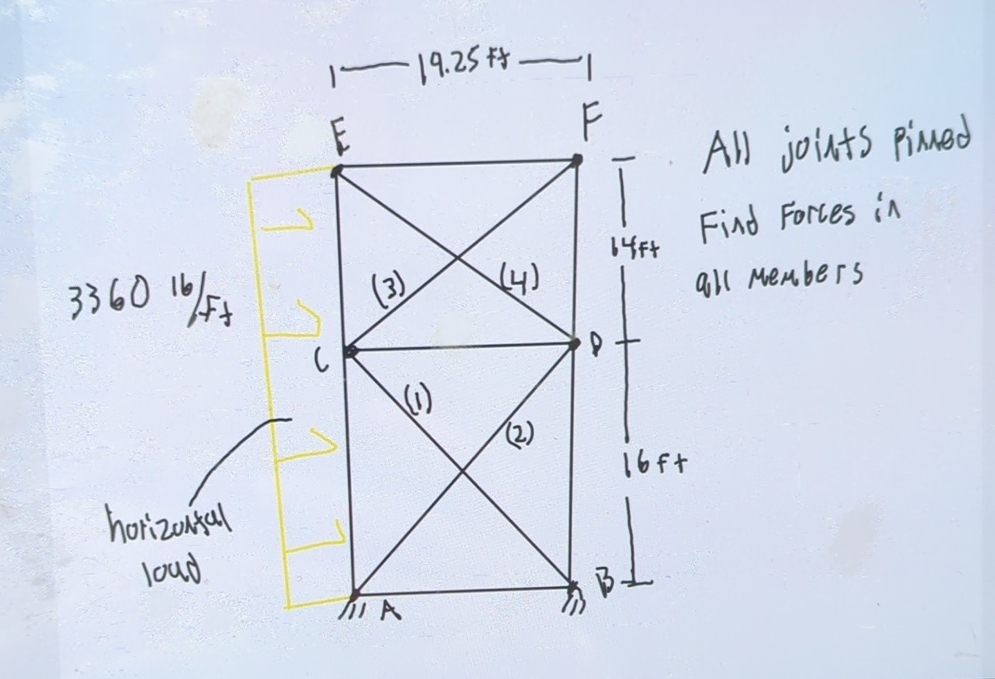 19.25 ft
E
F
All joints pinned
Find Forces in
all members
14ft
3360 lb/ft
(3)
(4)
C
D
(1)
(2)
16ft
horizontal
load
A
B